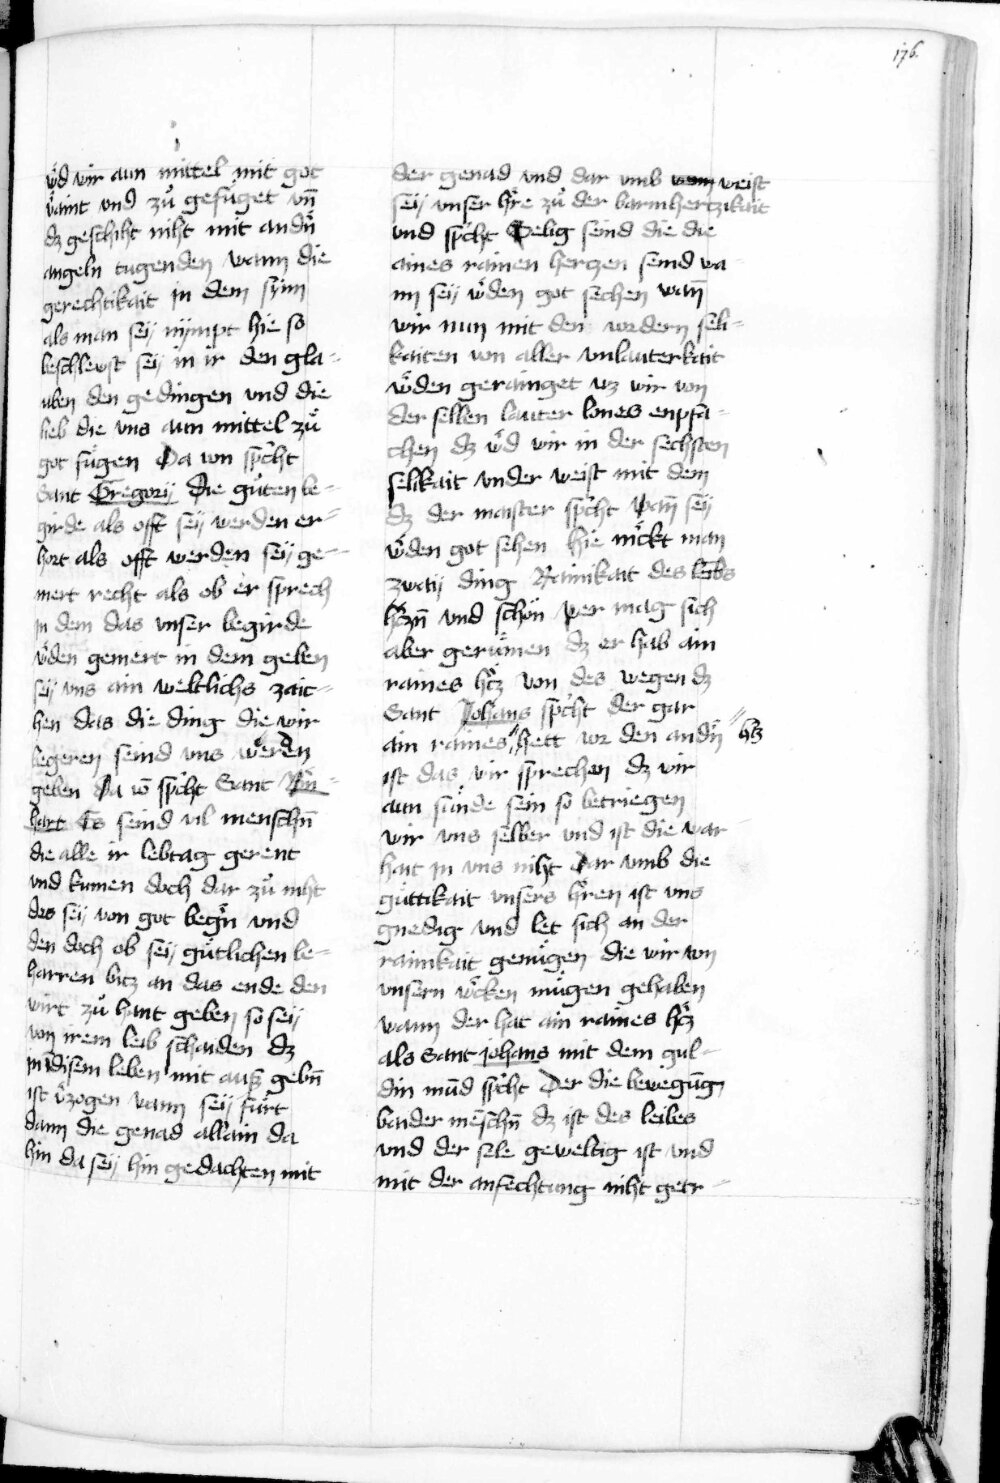 176
wͤd wir aun mittel mit got
vͤaint und zuͦ gefuͤget vn̄
dz geschiht niht mit andn̄
angeln tugenden wann die
gerechtikait in dem synn
als man seÿ nympt hie so
beschlewst seÿ in ir den gla-
uben den gedingen und die
lieb die vns aun mittel zuͦ
got fuͤgen Da von spͥcht
Sant Gregorÿ Die guͤten be-
girde als offt seÿ werden er-
hort als offt werden seÿ ge-
mert recht als ob er sprech
in dem das vnser begirde
wͤden gemert in dem geben
seÿ vns ain weltlichs zaic-
hen das die ding die wir
begeren seind vns werden
geben Da vō spͥcht Sant Bn̄-
hart Es seind vil menschn̄
die alle ir lebtag gerent
vnd kumen doch dar zuͦ niht
des seÿ von got begn̄ vnd
den doch ob seÿ guͤtlichen be-
harren bitz an das ende den
wirt zuͦ hant geben so seÿ
von irem leib schaiden dz
in disem leben mit ausz gebn̄
ist vͤzogen wann seÿ fuͤrt
dann die genad allain da
hin da seÿ hin gedachten mit
der genad vnd dar vmb weist
seÿ vnser hͤre zuͦ der barmhertzikait
vnd spͥcht Selig seind die die
aines rainen hertzen seind wa-
nn seÿ wͤden got sechen wan̄
wir nun mit den vordern seli-
kaiten von aller vnlauterkait
wͤden gerainget uz wir von
der selben lauter lones enpfa-
chen dz wͤd wir in der sechsten
selikait vnder weist mit dem
dz der maister spͥcht wan̄ seÿ
wͤden got sehen hie mͤckt man
zwaÿ ding Rainikait des leibs
hͤczn̄ vnd schon wer mag sich
aber geruͤmen dz er hab ain
raines hͤcz von des wegen dz
Sant Johans spͥcht der gar
ain raines hett vor den andn̄ hͤcz
ist das wir sprechen dz wir
aun suͤnde sein so betriegen
wir vns selber vnd ist die war-
hait in vns niht Dar vmb die
guͤttikait vnsers hͤren ist vns
gnedig vnd let sich an der
rainikait genuͤgen die wir von
vnsern wͤcken muͤgen gehaben
wann der hat ain raines hͤcz
als Sant johans mit dem gul-
din mūd spͥcht Der die bewegūg
baider mēschn̄ dz ist des leibes
vnd der sele geweltig ist vnd
mit der anfechtung niht getr-